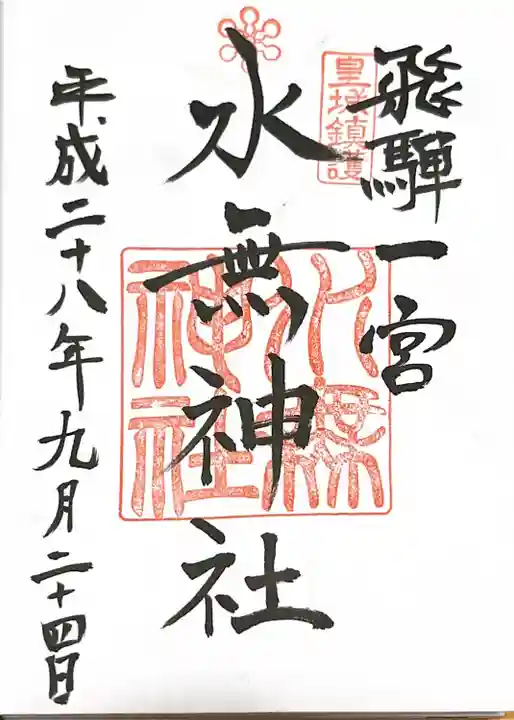 飛騨一宮
皇城鎮護
水無神社
水無神社
平成二十八年九月二十四日